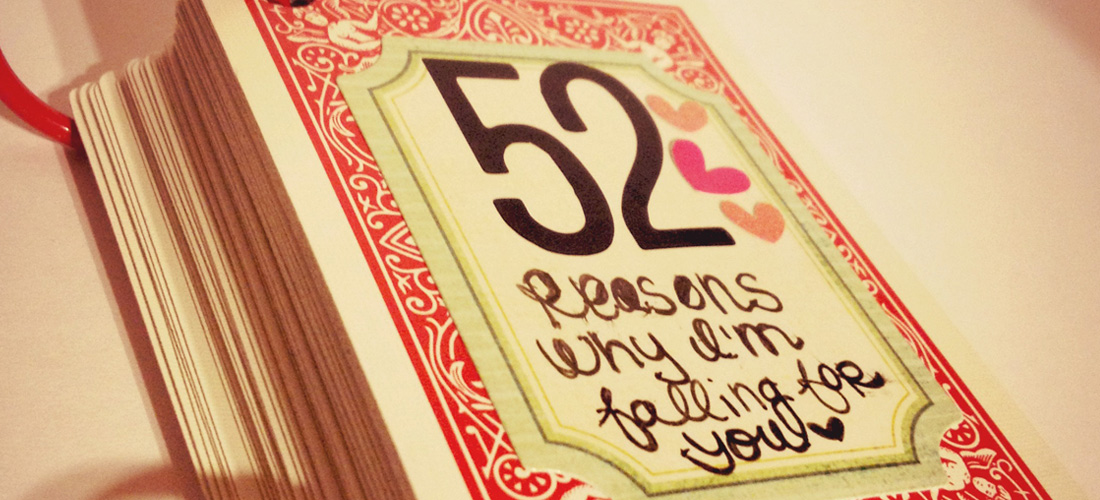 52
Reasons
why I'm
falling for
you